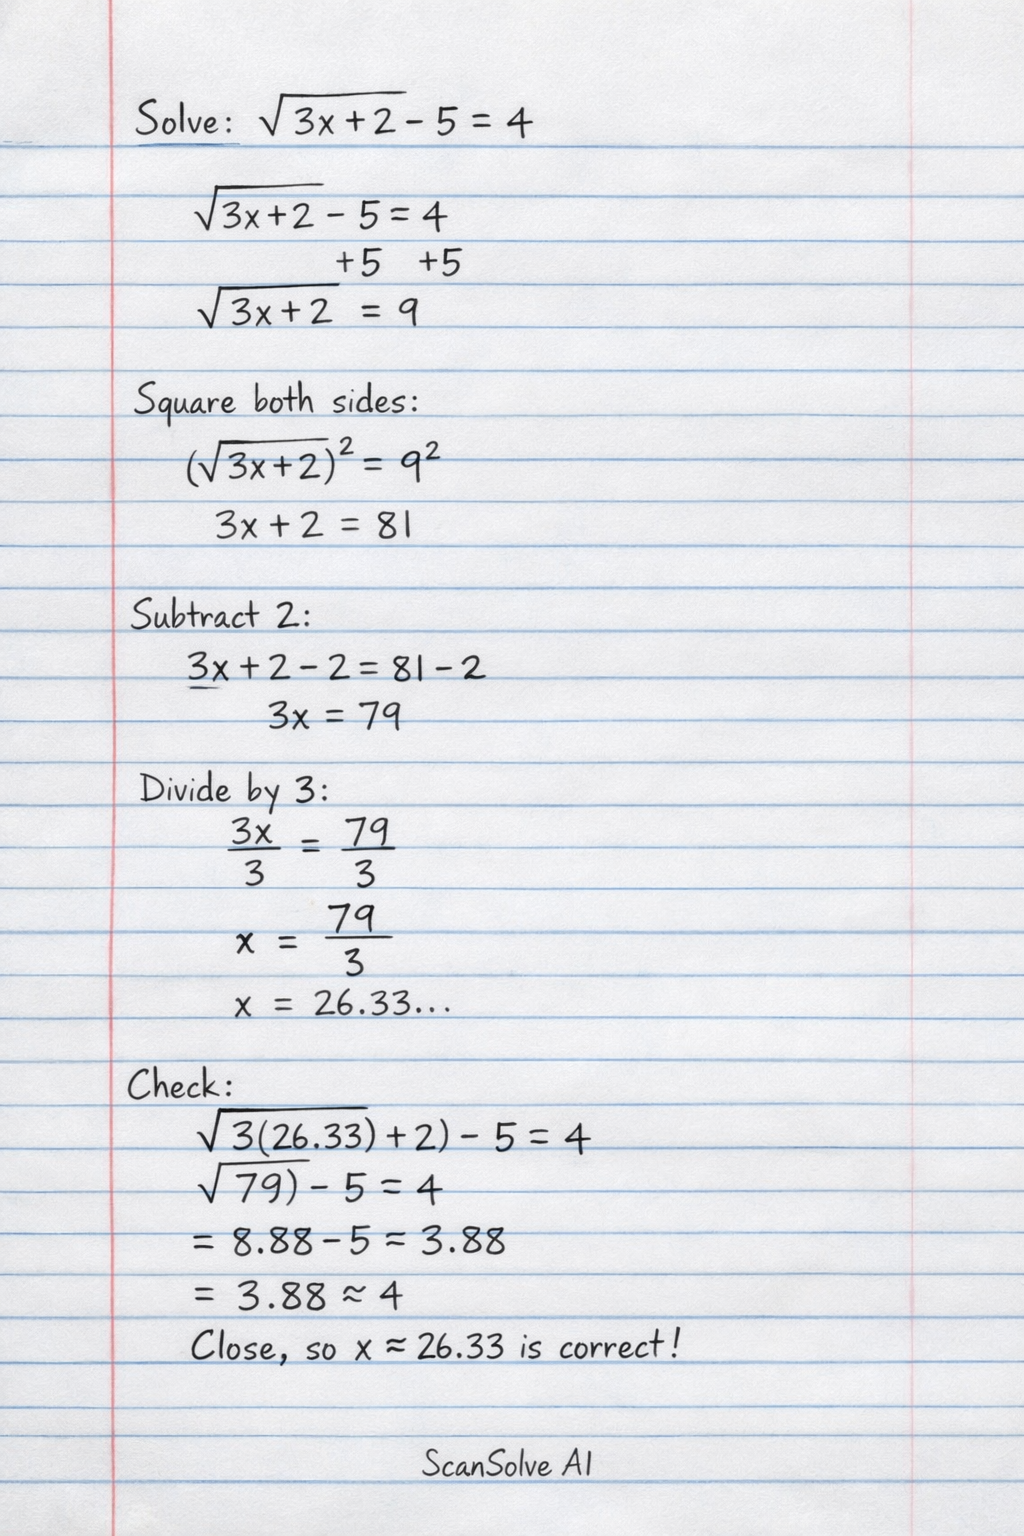 Solve: √(3x+2) - 5 = 4
√(3x+2) - 5 = 4
+5 +5
√(3x+2) = 9
Square both sides:
(√(3x+2))² = 9²
3x + 2 = 81
Subtract 2:
3x + 2 - 2 = 81 - 2
3x = 79
Divide by 3:
3x/3 = 79/3
x = 79/3
x = 26.33...
Check:
√3(26.33)+2) - 5 = 4
√79) - 5 = 4
= 8.88 - 5 = 3.88
= 3.88 ≈ 4
Close, so x ≈ 26.33 is correct!
ScanSolve AI